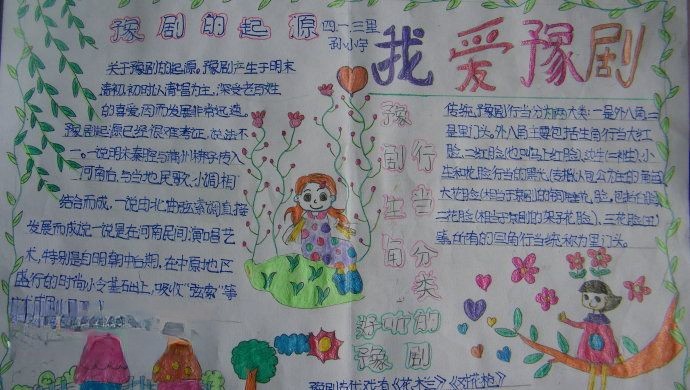 豫剧的起源
四一三里
孙小宇
我爱豫剧
关于豫剧的起源,豫剧产生于明末
清初,初时以清唱为主,深受老百姓
的喜爱,因而发展非常迅速。
豫剧起源已经很难考证,说法不
一。一说明末秦腔与蒲州梆子传入
河南后,与当地民歌、小调相
结合而成,一说由北曲弦索调直接
发展而成;一说是在河南民间演唱艺
术,特别是自明朝中后期,在中原地区
盛行的时尚小令基础上,吸收“弦索”等
豫剧生旦
行当分类
传统豫剧行当分为两大类:一是外八角二
是里门头。外八角主要包括生角行当大红
脸、二红脸
大花脸
二花脸
三花脸
所有的旦角行当统称为里门头。
好听的
豫剧
豫剧古代戏有《花木兰》《对花枪》